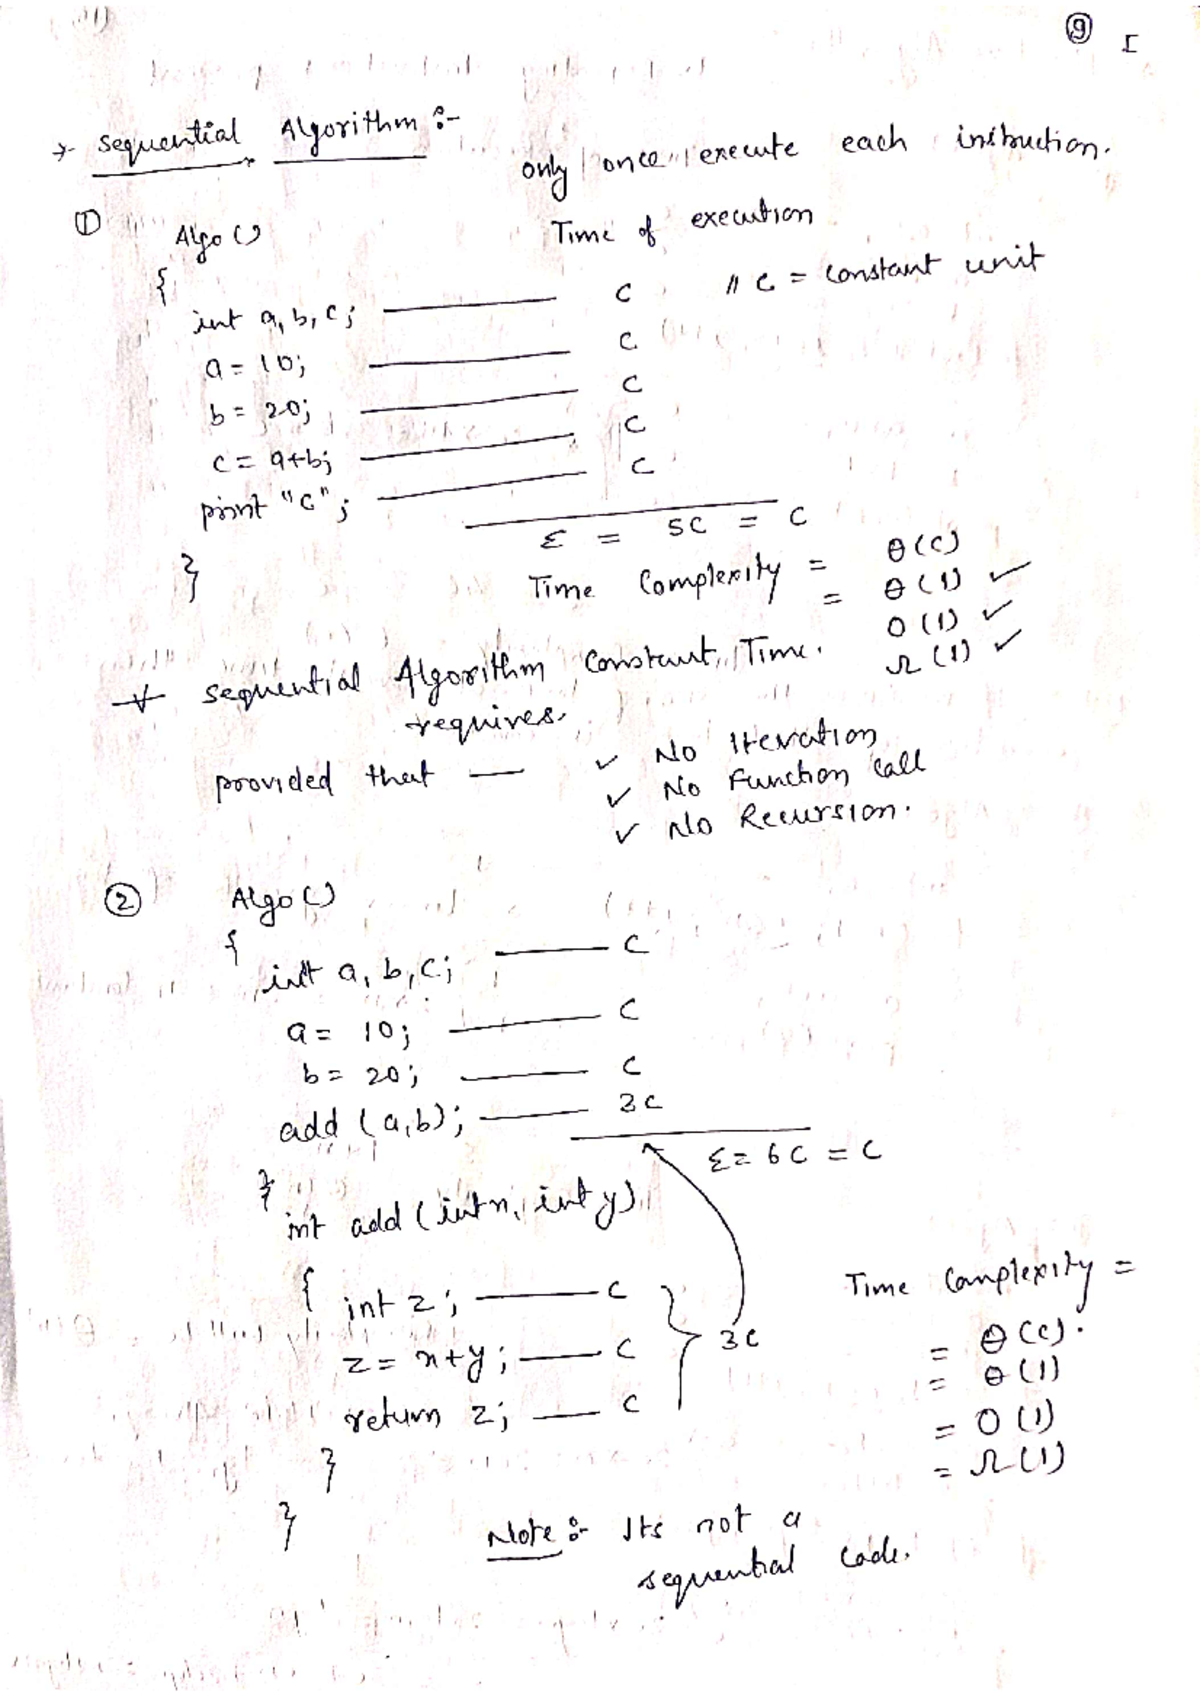 9
I
* Sequential Algorithm :-
only once execute each instruction.
① Algo ()
Time of execution
{
int a, b, c; — C // C = constant unit
a = 10; — C
b = 20; — C
c = a+b; — C
print "C"; — C
Σ = 5C = C
}
Time Complexity = θ(C)
= θ(1) ✓
O(1) ✓
Ω(1) ✓
* Sequential Algorithm Constant Time.
requires.
provided that — ✓ No Iteration
✓ No Function call
✓ No Recursion.
② Algo ()
{
int a, b, c; — C
a = 10; — C
b = 20; — C
add (a,b); — 3C
Σ = 6C = C
}
int add (int n, int y)
{ int z; — C
z = n+y; — C } 3C
return z; — C
}
}
Time Complexity =
= θ(C).
= θ(1)
= O(1)
= Ω(1)
Note :- Its not a
sequential code.